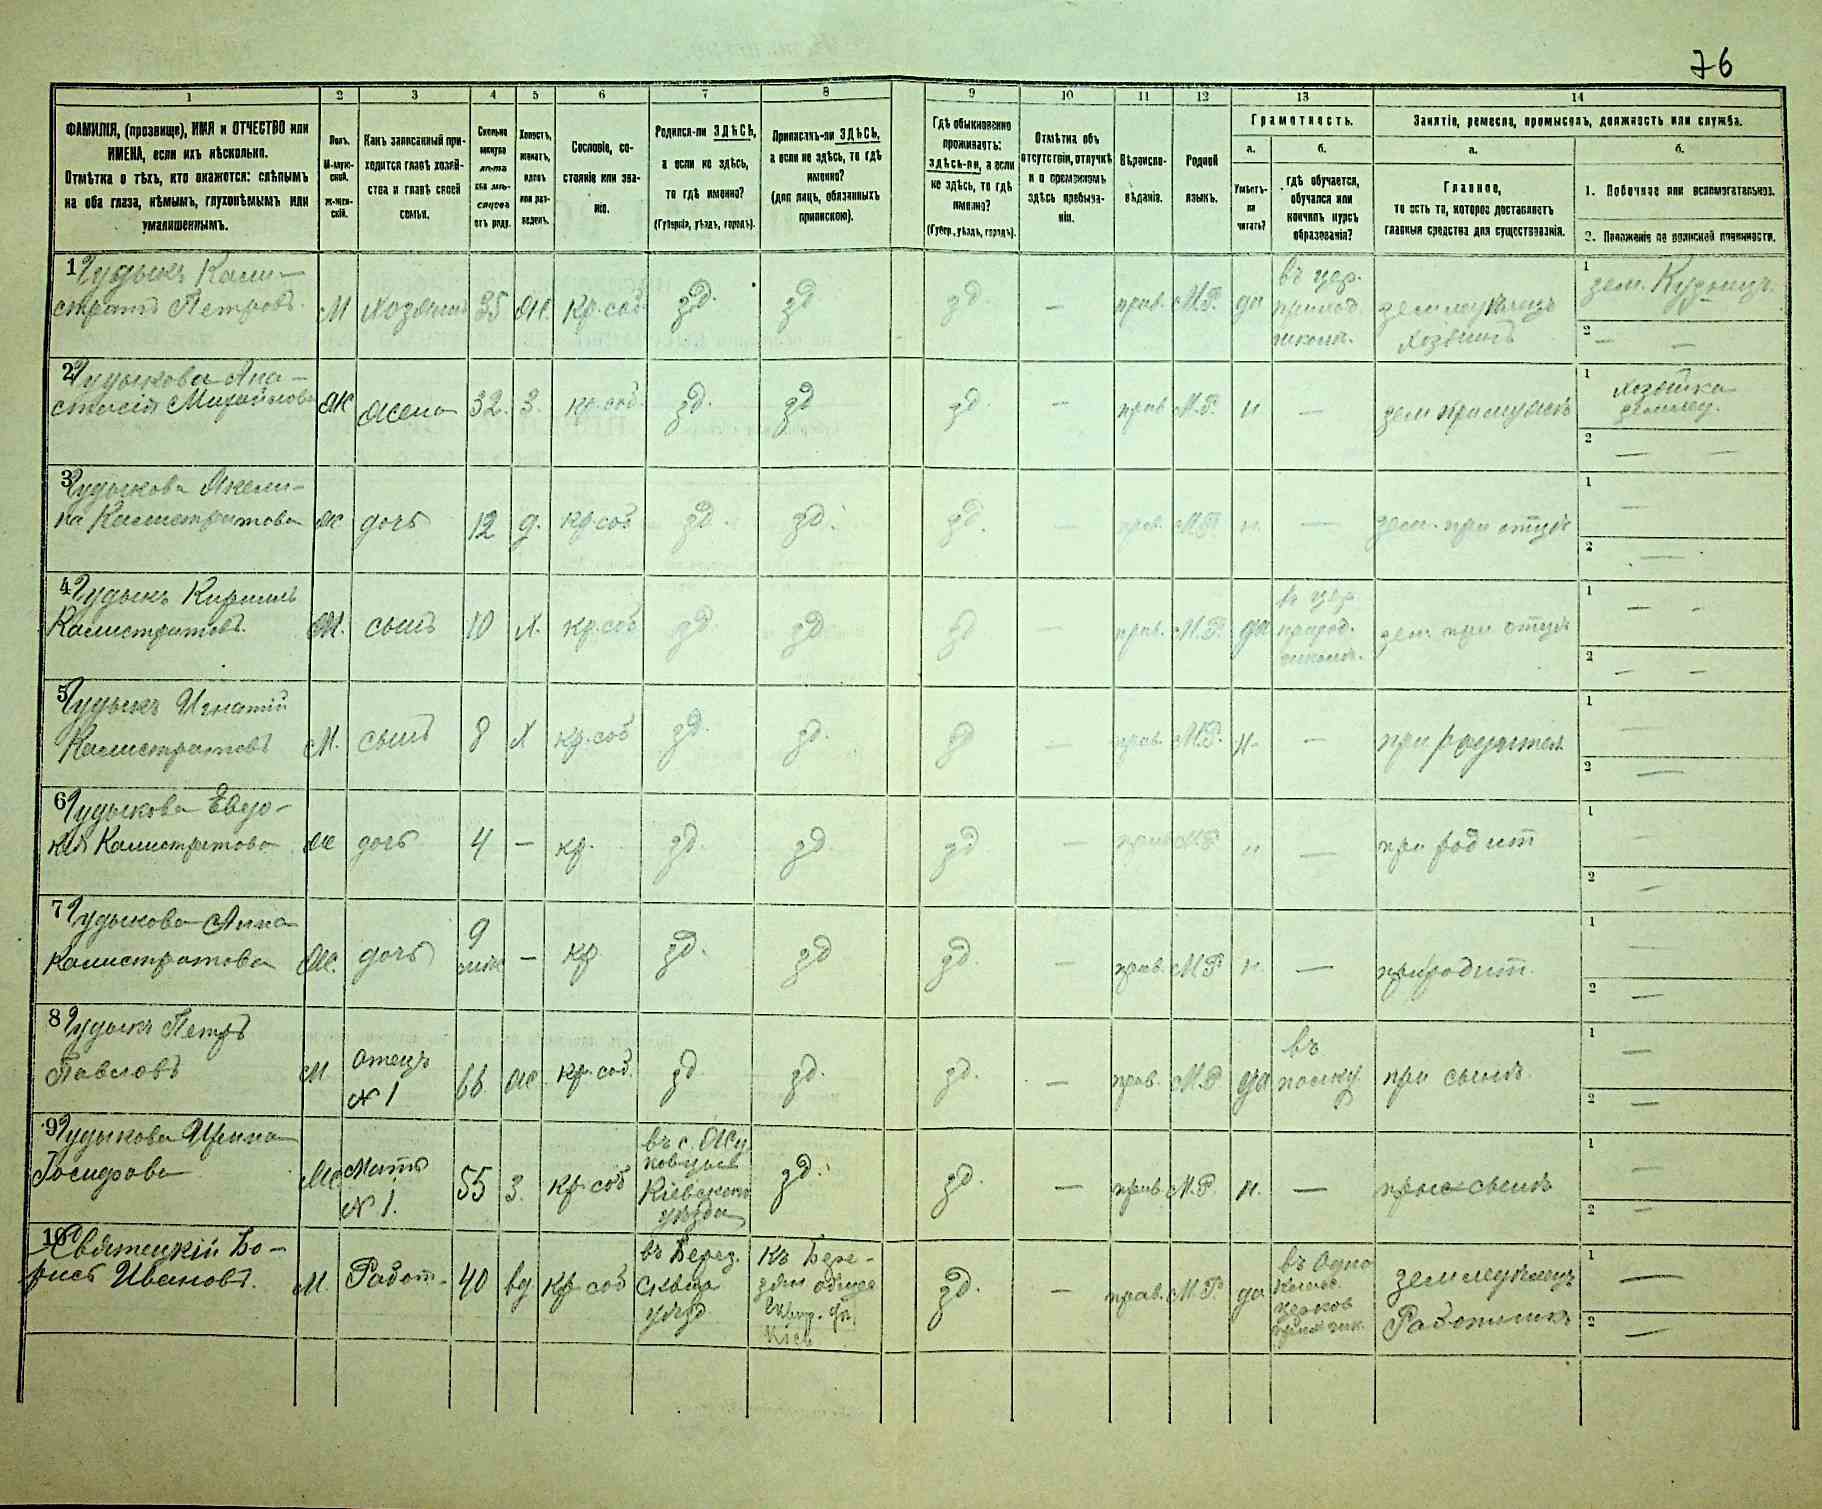 76
1 2 3 4 5 6 7 8 9 10 11 12 13 14
ФАМИЛІЯ, (прозвище), ИМЯ и ОТЧЕСТВО или
ИМЕНА, если ихъ нѣсколько.
Отмѣтка о тѣхъ, кто окажется: слѣпымъ
на оба глаза, нѣмымъ, глухонѣмымъ или
умалишеннымъ.
Полъ.
М-муж-
ской.
Ж-жен-
скій.
Какъ записанный при-
ходится главѣ хозяй-
ства и главѣ своей
семьи.
Сколько
минуло
лѣтъ
или мѣ-
сяцевъ
отъ роду.
Холостъ,
женатъ,
вдовъ
или раз-
веденъ.
Сословіе, со-
стояніе или зва-
ніе.
Родился-ли ЗДѢСЬ,
а если не здѣсь,
то гдѣ именно?
(Губернія, уѣздъ, городъ).
Приписанъ-ли ЗДѢСЬ,
а если не здѣсь, то гдѣ
именно?
(для лицъ, обязанныхъ
припискою).
Гдѣ обыкновенно
проживаетъ:
здѣсь-ли, а если
не здѣсь, то гдѣ
именно?
(Губер., уѣздъ, городъ).
Отмѣтка объ
отсутствіи, отлучкѣ
и о временномъ
здѣсь пребыва-
ніи.
Вѣроиспо-
вѣданіе.
Родной
языкъ.
Грамотность.
а.
Умѣетъ-
ли
читать?
б.
гдѣ обучается,
обучался или
кончилъ курсъ
образованія?
Занятіе, ремесло, промыселъ, должность или служба.
а.
Главное,
то есть то, которое доставляетъ
главныя средства для существованія.
б.
1. Побочное или вспомогательное.
2. Положеніе по воинской повинности.
1 Чудыкъ Кали-
стратъ Петровъ. М Хозяинъ 35 Ж. Кр. соб. зд. зд зд — прав. М.Р. да въ цер. приход. школѣ. землед��лецъ Хозяинъ 1 зем. Кузнецъ. 2 — —
2 Чудыкова Ана-
стасія Михайлова Ж жена 32. З. кр. соб. зд. зд зд. — прав М.Р. н — зем. при мужѣ 1 Хозяйка землед. 2 — —
3 Чудыкова Акели-
на Калистратова ж дочь 12 д. кр. соб зд. зд. зд. — прав. М.Р. н. — зем. при отцѣ 1 — 2 —
4 Чудыкъ Кирилъ
Калистратовъ. М. сынъ 10 Х. кр. соб зд. зд. зд — прав. М.Р. да в цер. приход. школѣ. зем. при отцѣ 1 — - 2 — —
5 Чудыкъ Игнатій
Калистратовъ М. сынъ 8 Х кр. соб зд. зд. зд — прав. М.Р. н. — при родител. 1 — 2 —
6 Чудыкова Евдо-
кія Калистратова ж дочь 4 — кр. зд. зд. зд — прав М.Р н — при родит 1 — 2 —
7 Чудыкова Анна
Калистратова Ж. дочь 9 — кр зд. зд зд. — прав. М.Р н. — при родит. 1 — 2 —
8 Чудыкъ Петръ
Павловъ М отецъ № 1 66 Ж кр. соб. зд зд. зд. — прав. М.Р да въ полку при сынѣ 1 — 2 —
9 Чудыкова Ирина
Іосифова Ж Мать № 1. 55 З. кр. соб въ с. Кіевскаго уѣзда зд. зд. — прав М.Р. н. — при сынѣ 1 — 2 —
10 Святецкій Бо-
рисъ Ивановъ. М. Работ. 40 вд кр. соб въ уѣзд Къ зд. — прав. М.Р да въ землед��лецъ Работникъ 1 — 2 —